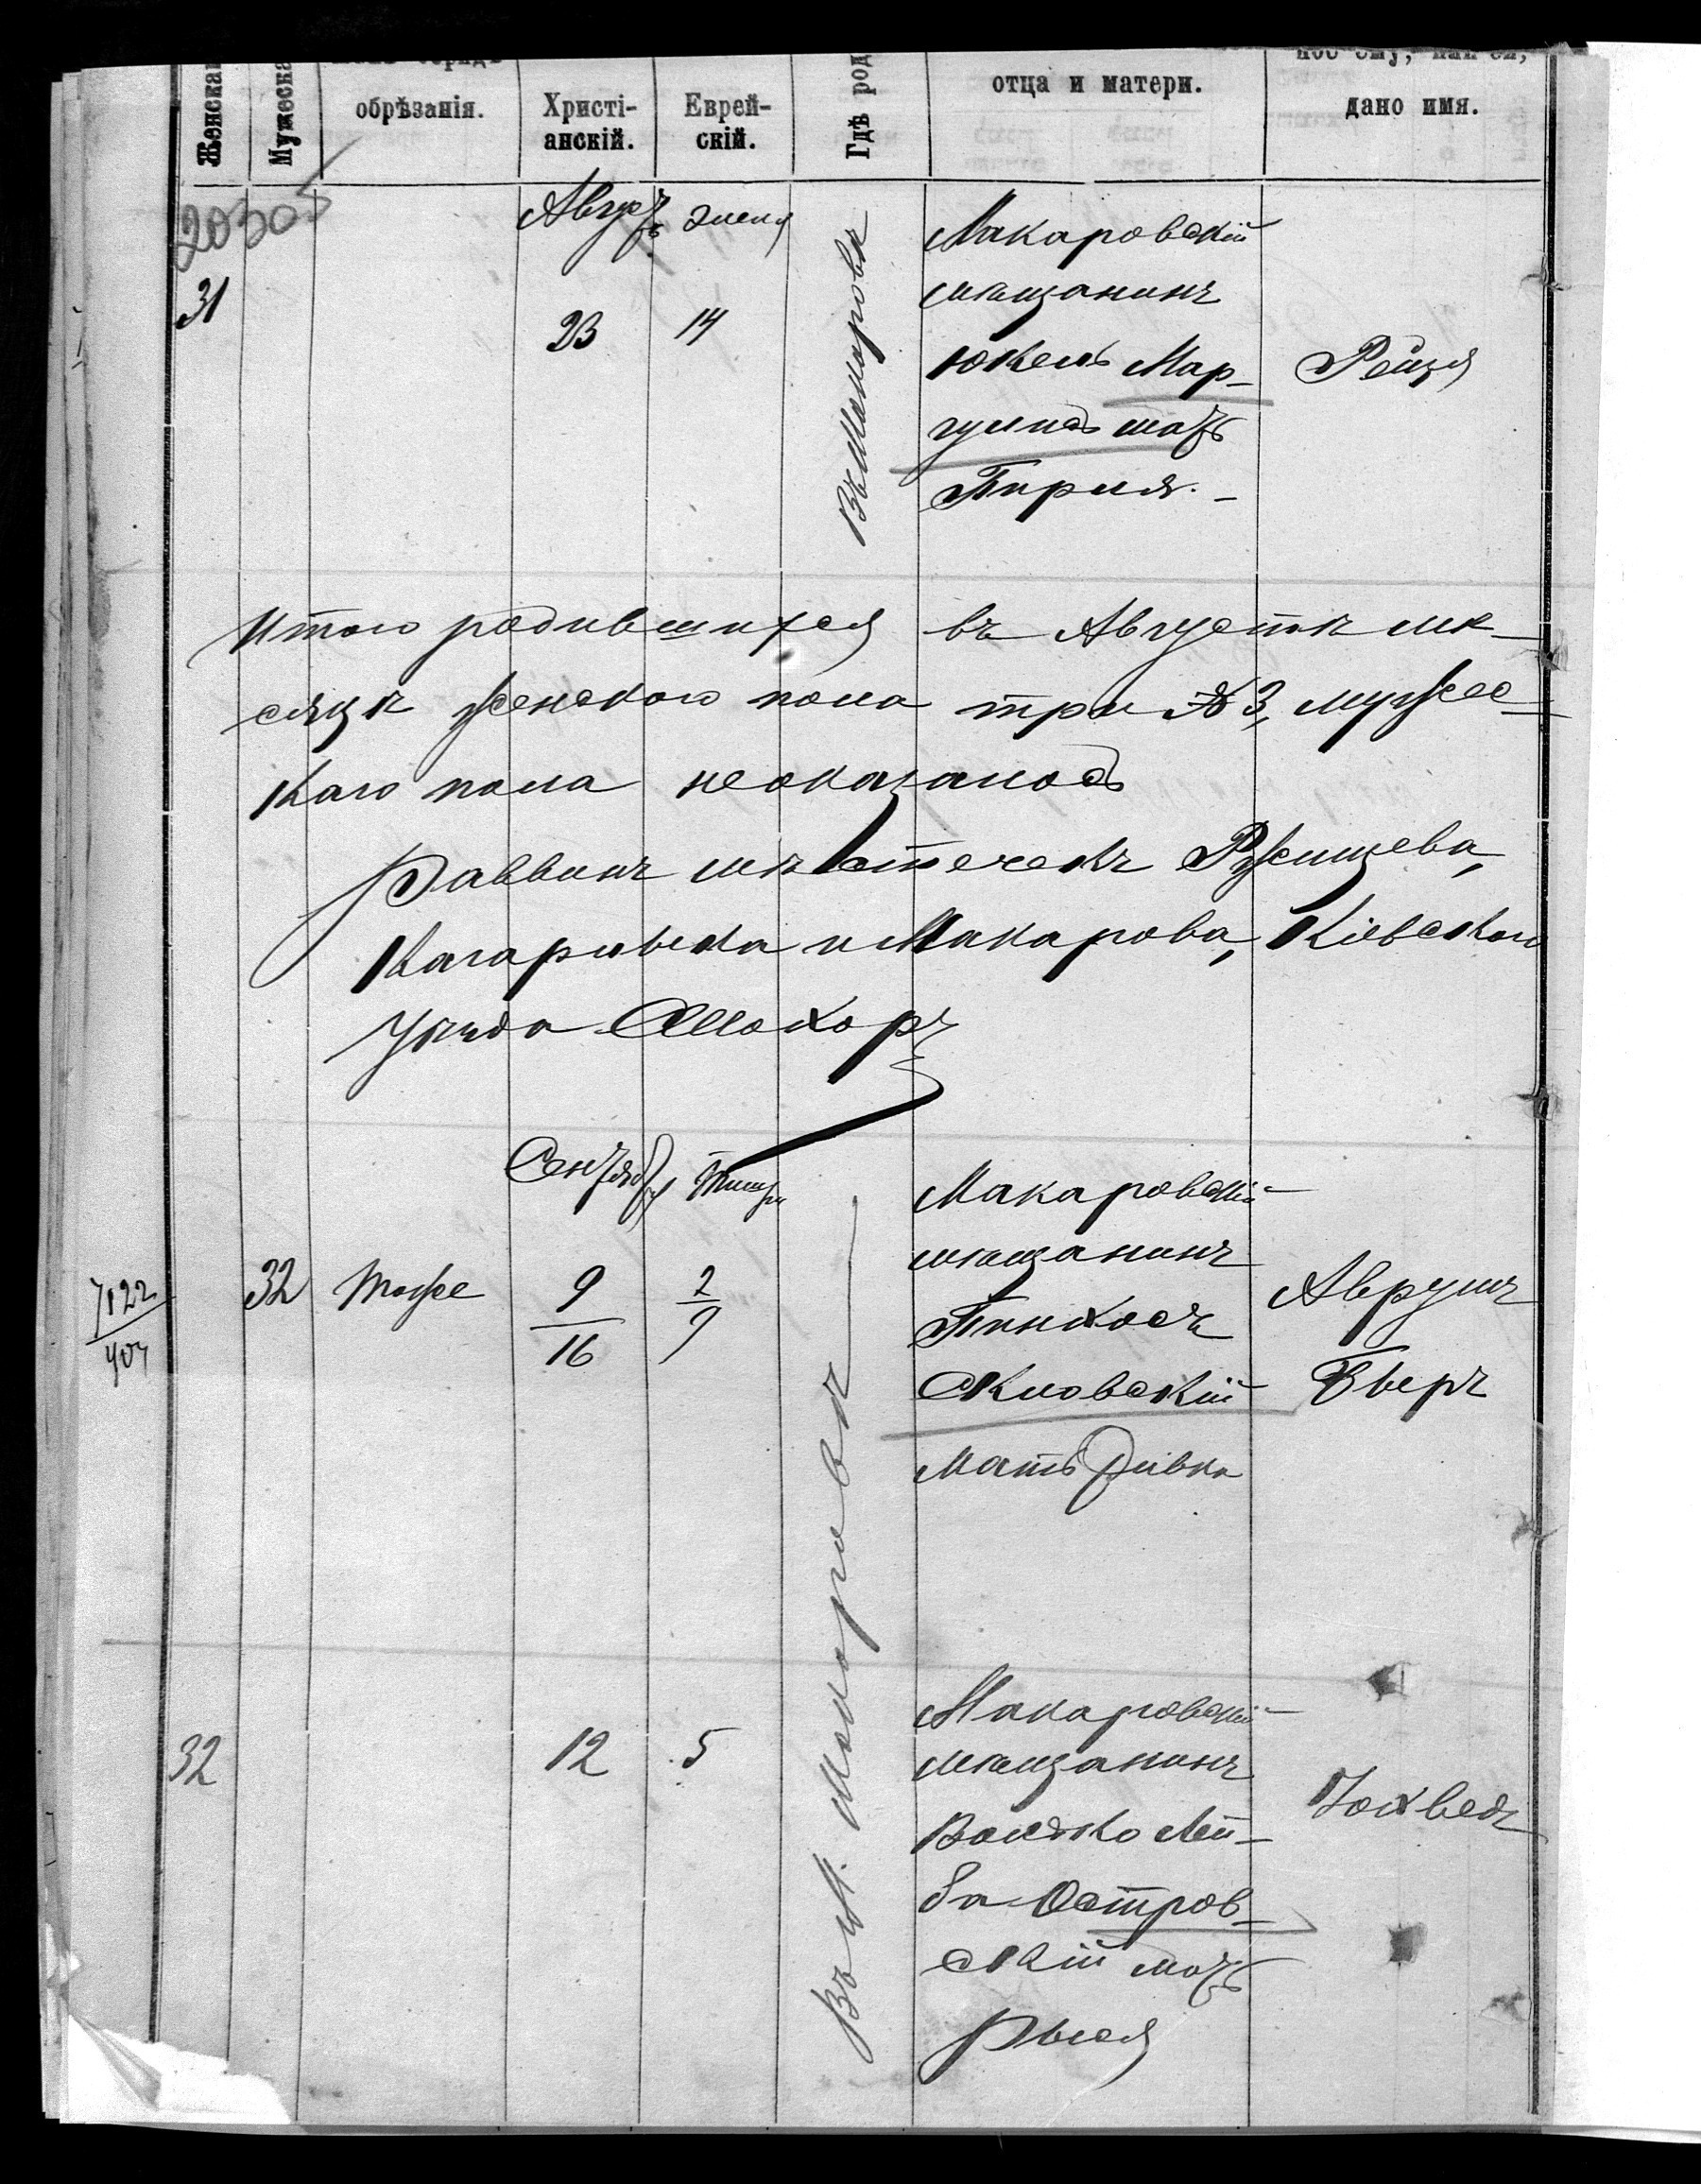 Женская
Мужеска
обрѣзанія.
Христі-
анскій.
Еврей-
скій.
Гдѣ род
отца и матери.
дано имя.
20305
31
Августъ
Элели
23
14
Въ м Макаровѣ
Макаровскій
мѣщанинъ
Юкель Мар-
гулисъ мать
Пирля.-
Рейзя
Итого родившихся въ Августѣ мѣ-
сяцѣ женскаго пола три № 3, мужес-
каго пола неоказалось
Раввинъ мѣстечекъ Ржищева,
Кагарлыка и Макарова, Кіевскаго
Уѣзда
Сентябр
Тишри
7122
404
32
Тотже
9
16
2
9
Макаровскій
мѣщанинъ
Пинхосъ
Сквовскій
мать Ривка
Аврумъ
Беръ
Въ м. Макаровѣ
32
12
5
Макаровскій
мѣщанинъ
Волько Лей-
ба Остров-
скій мать
Рыся
Іохведъ